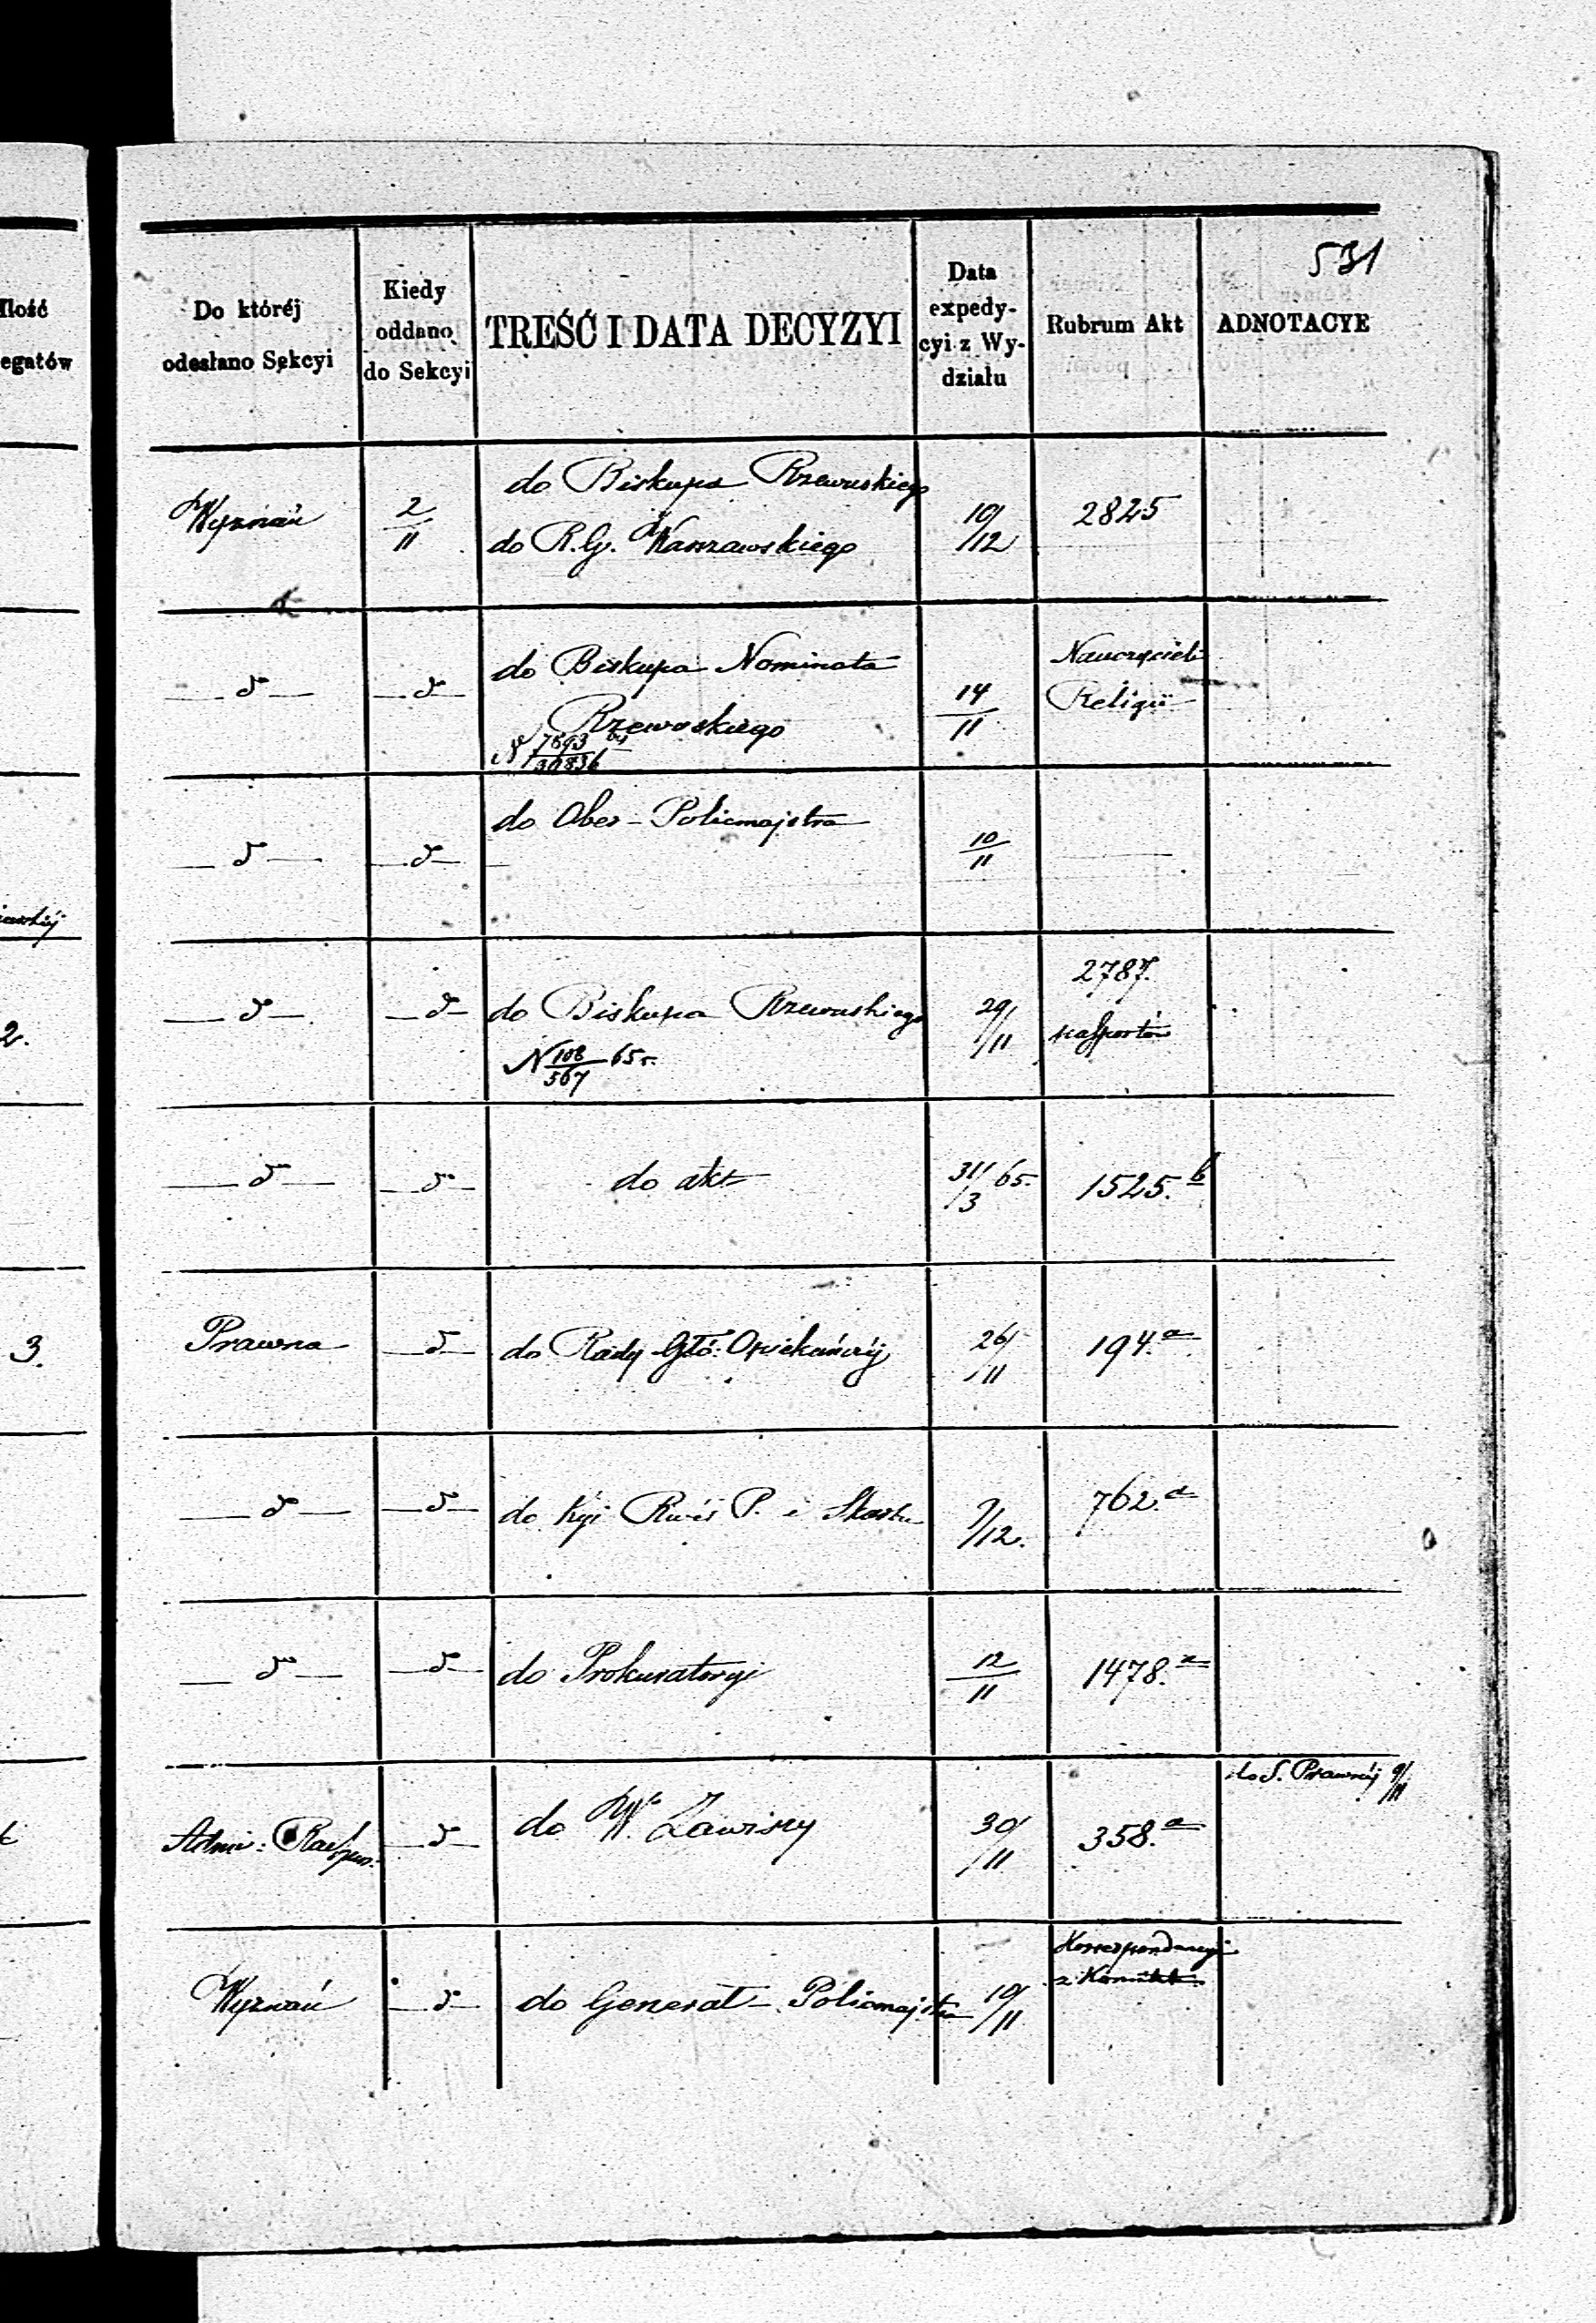 531
Ilość
egatów
Do któréj
odesłano Sekcyi
Kiedy
oddano
do Sekcyi
TREŚĆ I DATA DECYZYI
Data
expedy-
cyi z Wy-
działu
Rubrum Akt
ADNOTACYE
Wyznań
2/11
do Biskupa Rzewuskiego
do R.G. Warszawskiego
10/12
2825
— d° —
— d° —
do Biskupa Nominata
Rzewuskiego
14/11
Nauczyciele
Religii
— d° —
— d° —
do Ober-Policmajstra
10/11
—
— d° —
— d° —
do Biskupa Rzewuskiego
N 108/567 65 r.
29/11
2787.
2.
— d° —
— d° —
do akt
31/3 65.
1525. b
3.
Prawna
— d° —
do Rady Głó: Opiekuńczéj
26/11
194. a
— d° —
— d° —
do Kyi P. i Skarbu
9/12.
762. a
— d° —
— d° —
do Prokuratoryi
12/11
1478. a
do S. Prawnéj 9/11
Admi: Rachun:
— d° —
do W° Zawiszy
30/11
358. a
Wyznań
— d° —
do Generał-Policmajstra
10/11
Korrespondencyi
z Komitet